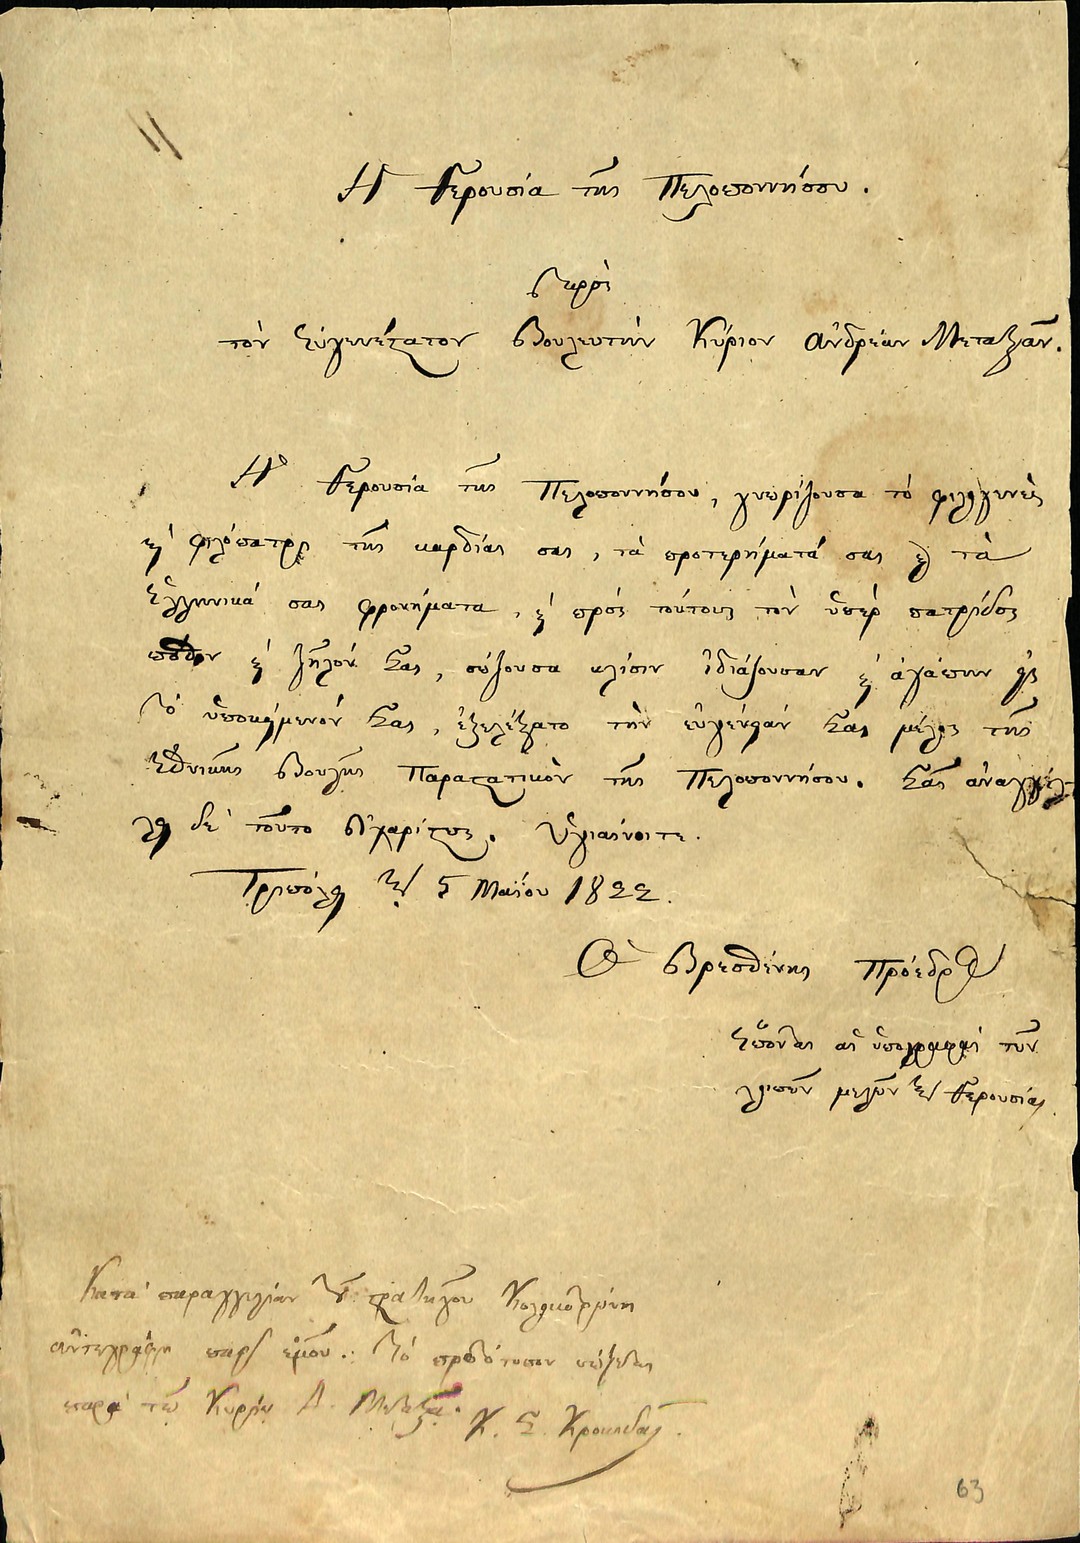 Ἡ Γερουσία τῆς Πελοποννήσου.
πρὸς
τὸν Εὐγενέστατον Βουλευτὴν Κύριον Ἀνδρέαν Μεταξᾶν.
Ἡ Γερουσία τῆς Πελοποννήσου, γνωρίζουσα τὸ φιλογενὲς
καὶ φιλόπατρι τῆς καρδίας σας, τὰ προτερήματά σας καὶ τὰ
Ἑλληνικά σας φρονήματα, καὶ πρὸς τούτοις τὸν ὑπὲρ πατρίδος
πόθον καὶ ζῆλόν Σας, σώζουσα κλίσιν ἰδιάζουσαν καὶ ἀγάπην εἰς
τὸ ὑποκείμενόν Σας, ἐξελέξατο τὴν εὐγένειάν Σας μέλος τῆς
Ἐθνικῆς Βουλῆς Παραστατικὸν τῆς Πελοποννήσου. Σᾶς ἀναγγέλ-
λει δὲ τοῦτο εὐχαρίστως. Ὑγιαίνοιτε.
Τριπόλει τῇ 5 Μαΐου 1822.
Ὁ Βρεσθένης Πρόεδρος
Ἕπονται αἱ ὑπογραφαὶ τῶν
λοιπῶν μελῶν τῆς Γερουσίας.
Κατὰ παραγγελίαν τοῦ στρατηγοῦ Κολοκοτρώνη
ἀντεγράφη παρ' ἐμοῦ. Τὸ πρωτότυπον σώζεται
παρὰ τῷ Κυρίῳ Α. Μεταξᾷ.
Κ. Σ. Κροκιδας.
63